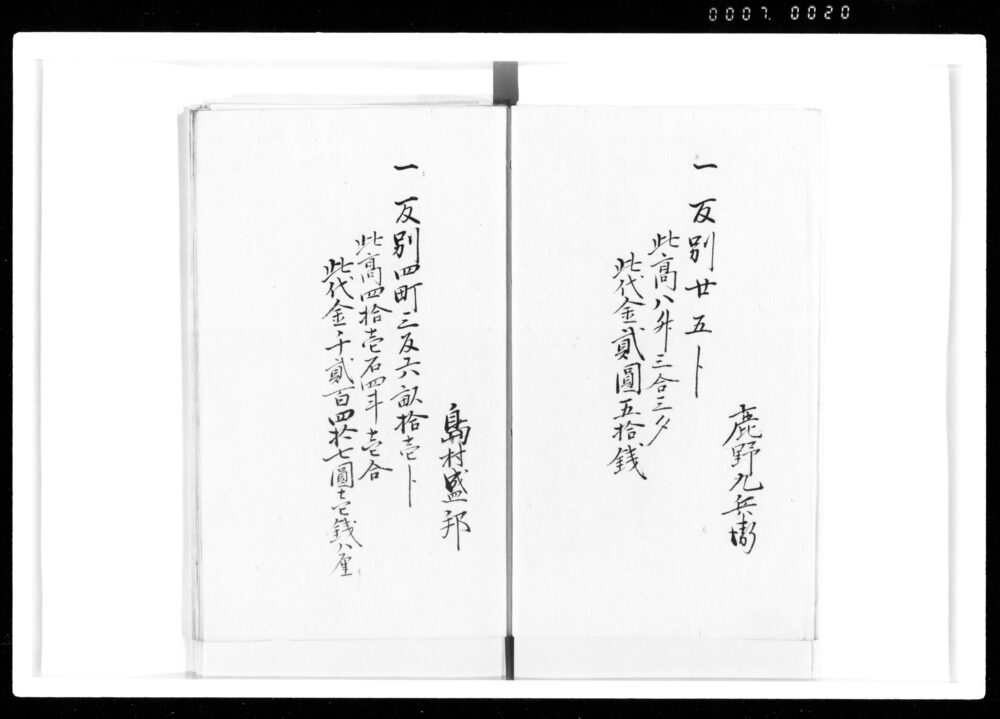 0007. 0020
鹿野九兵衛
一反別廿五卜
此高八升三合三夕
此代金貳圓五拾銭
島村盛邦
一反別四町三反六畝拾壱卜
此高四拾壱石四斗壱合
此代金千貳百四拾七圓壱銭八厘